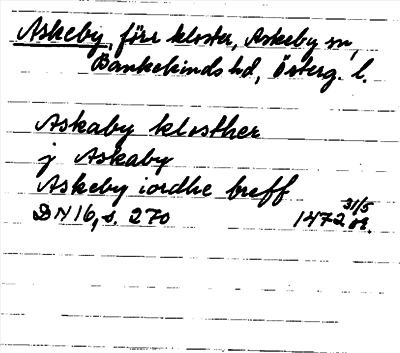 Askeby, förr kloster, Askeby sn,
Bankekinds hd, Österg. l.
Askaby klosther
j Askaby
Askeby iordhe breff
DN 16, s. 270 1472 31/5 or.